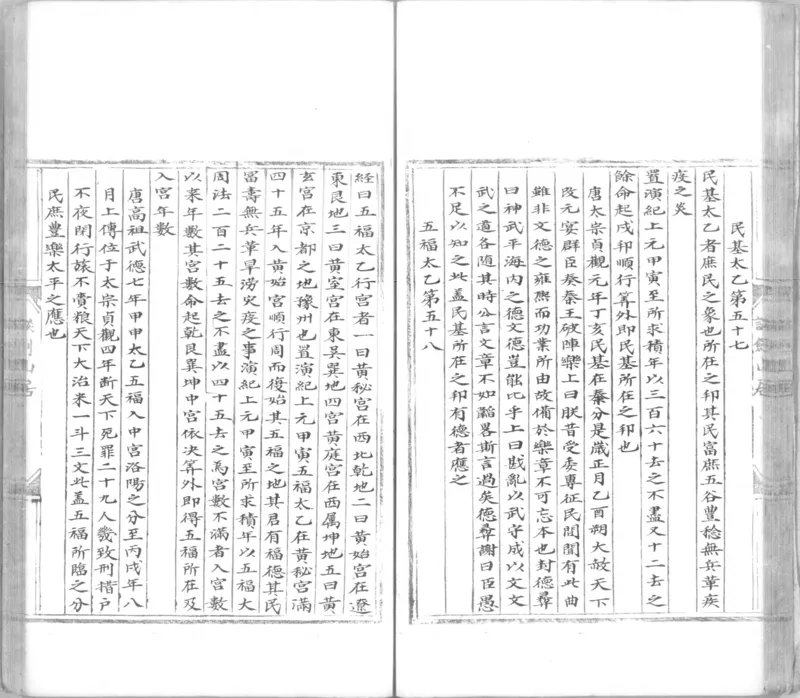 民基太乙第五十七
民基太乙者庶民之象也所在之邦其民富庶五谷豊稔無兵革疾
疫之災
置演紀上元甲寅至所求積年以三百六十去之不盡又十二去之
餘命起戌邦順行筭外即民基所在之邦也
唐太宗貞觀元年丁亥民基在秦分是歲正月乙酉朔大赦天下
改元宴群臣奏秦王破陣樂上曰朕昔受委專征民間有此曲
雖非文德之雍熙而功業所由故備於樂章不可忘本也封德彛
曰神武平海内之德文德豈能比乎上曰戡亂以武守成以文文
武之道各随其時公言文章不如韜畧斯言過矣德彛謝曰臣愚
不足以知之此盖民基所在之邦有德者應之
五福太乙第五十八
経曰五福太乙行宫者一曰黄秘宫在西北乾地二曰黄始宫在遼
東艮地三曰黄室宫在東吴巽地四宫黄庭宫在西属坤地五曰黄
玄宫在京都之地豫州也置演紀上元甲寅五福太乙在黄秘宫滿
四十五年入黄始宫順行周而復始其五福之地其君有福德其民
富壽無兵革旱澇灾疫之事演紀上元甲寅至所求積年以五福大
周法二百二十五去之不盡以四十五去之為宫數不滿者入宫數
以来年數其宫數命起乾艮巽坤中宫依决筭外即得五福所在及
入宫年數
唐高祖武德七年甲申太乙五福入中宫洛陽之分至丙戌年八
月上傳位于太宗貞觀四年断天下死罪二十九人幾致刑措户
不夜閉行旅不賫粮天下大治米一斗三文此盖五福所臨之分
民庶豊樂太平之應也